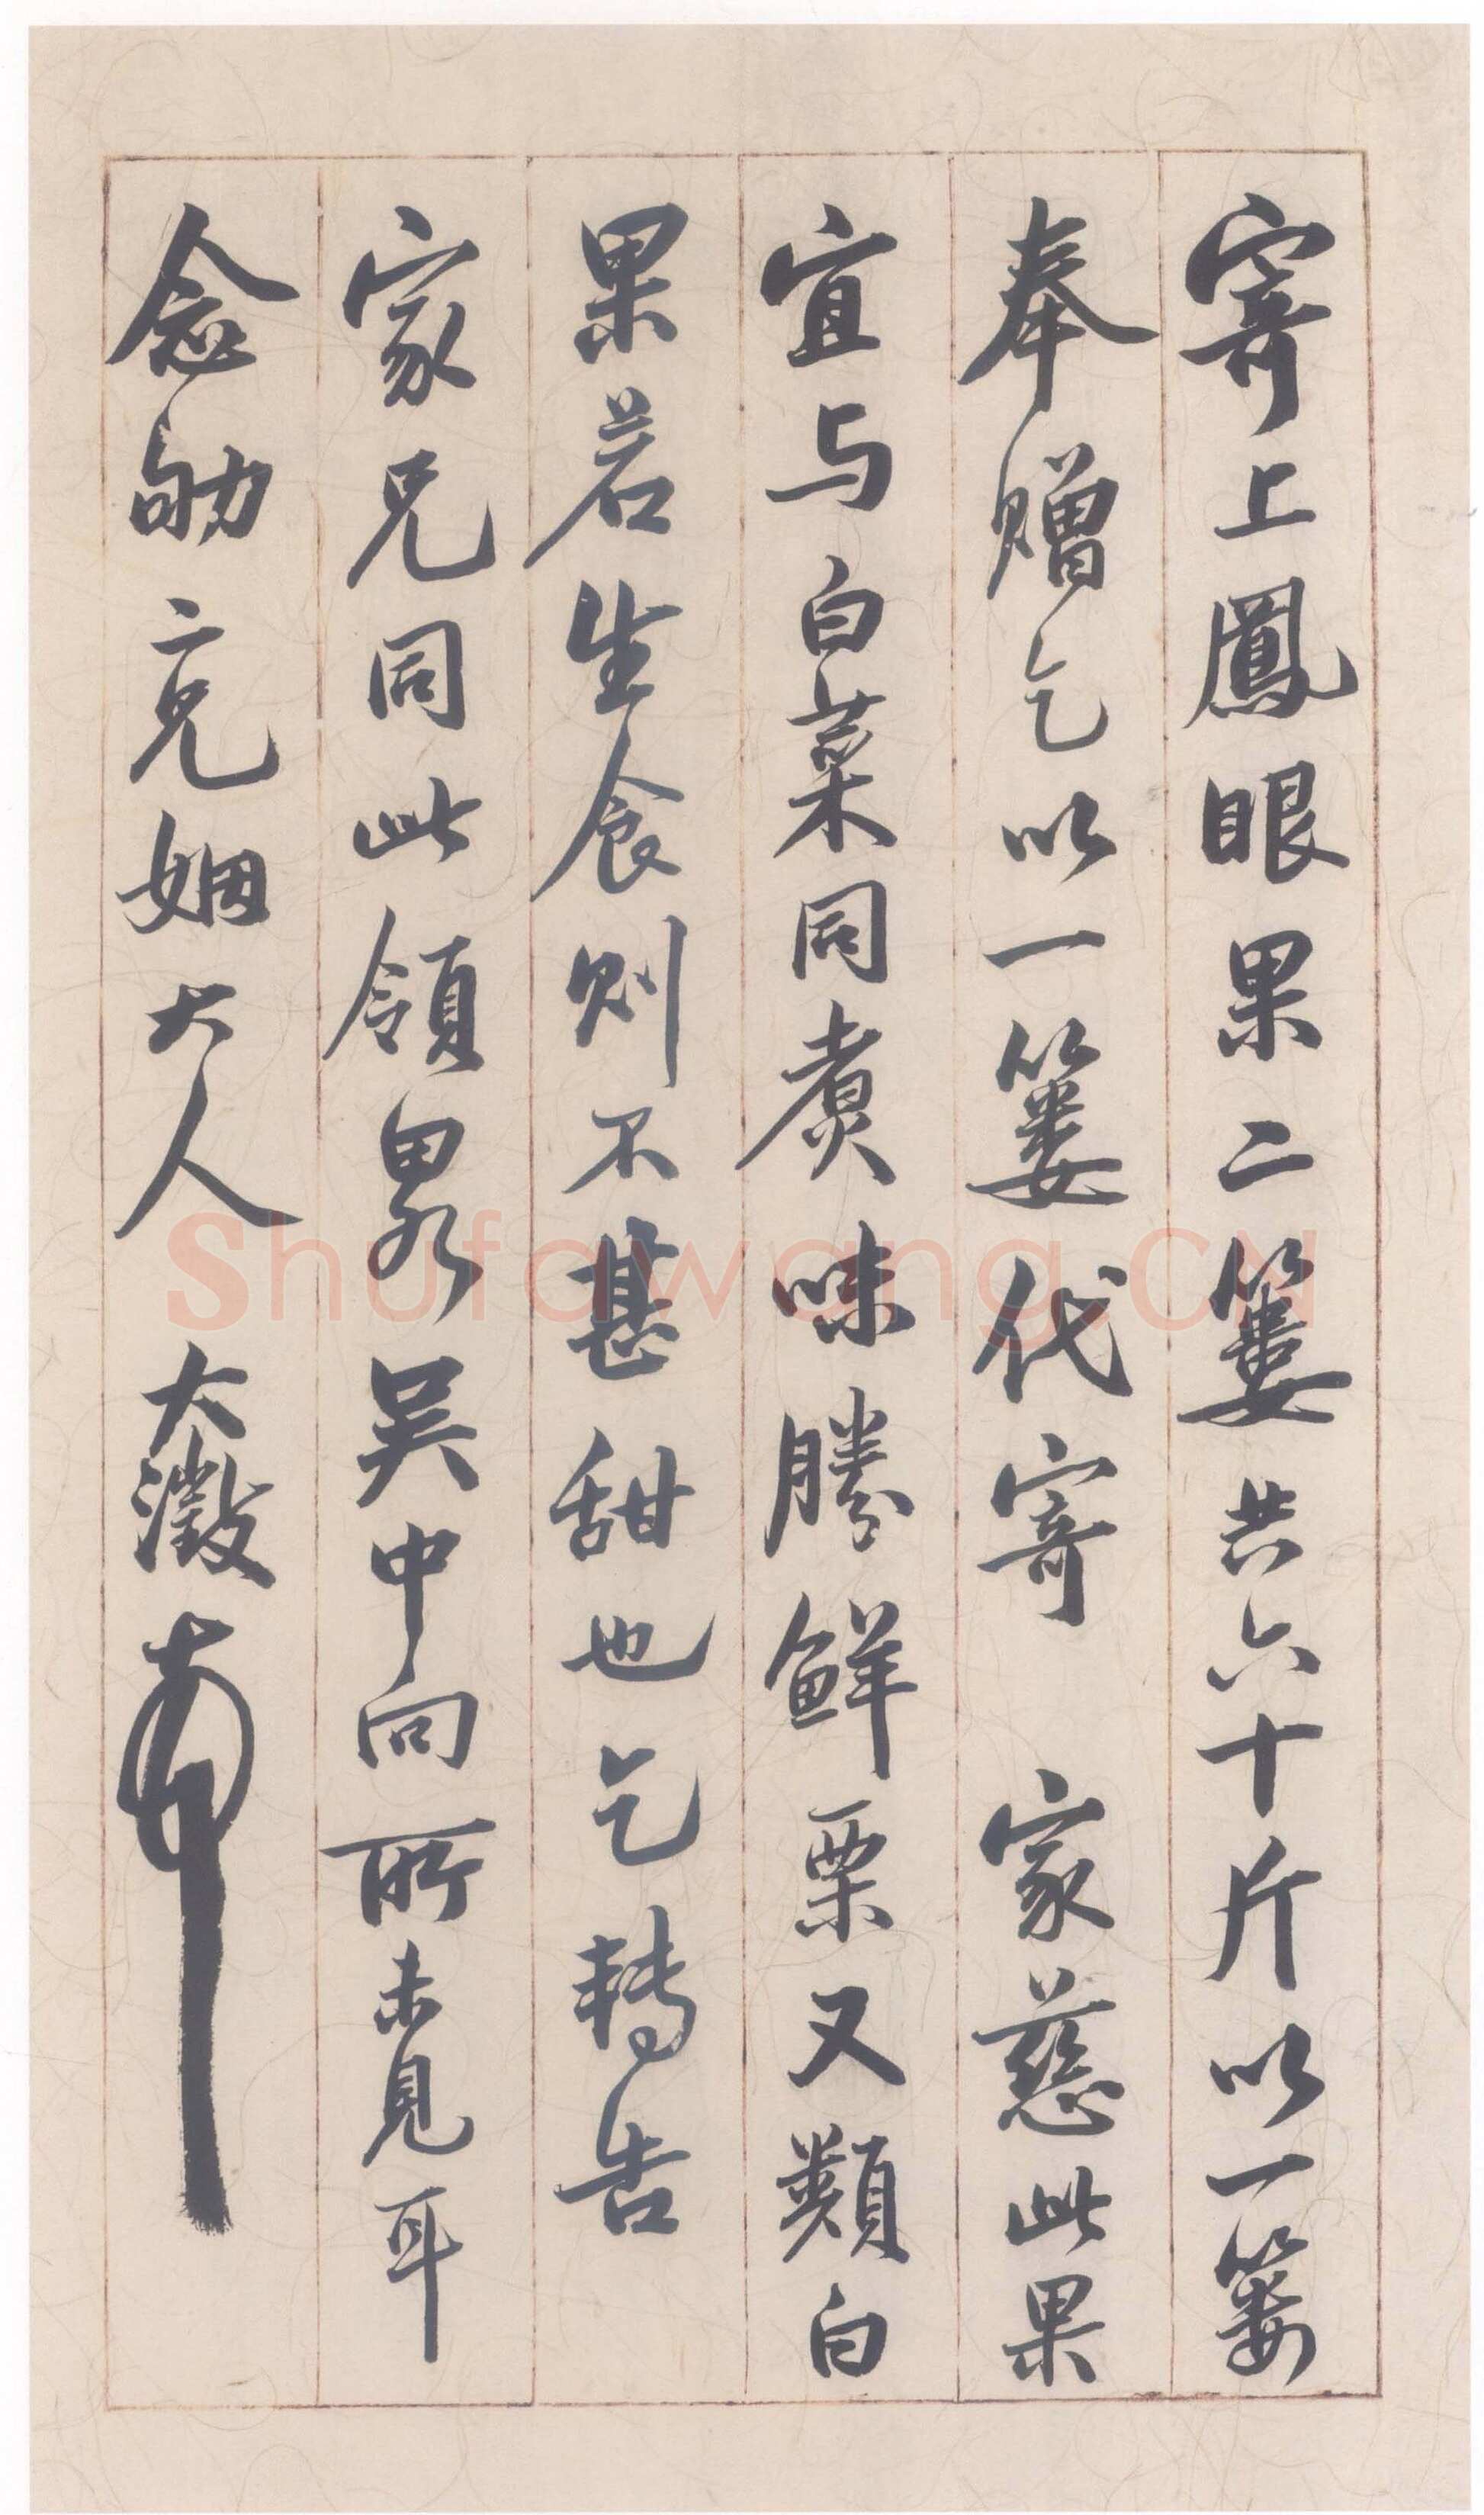 寄上鳳眼果二簍共六十斤以一簍
奉贈乞以一簍代寄 家慈此果
宜与白菜同煮味勝鮮栗又類白
果若生食則不甚甜也乞轉告
家兄同此領畧吴中向所未見耳
念劬二兄姻大人 大澂
Shufawang.CN